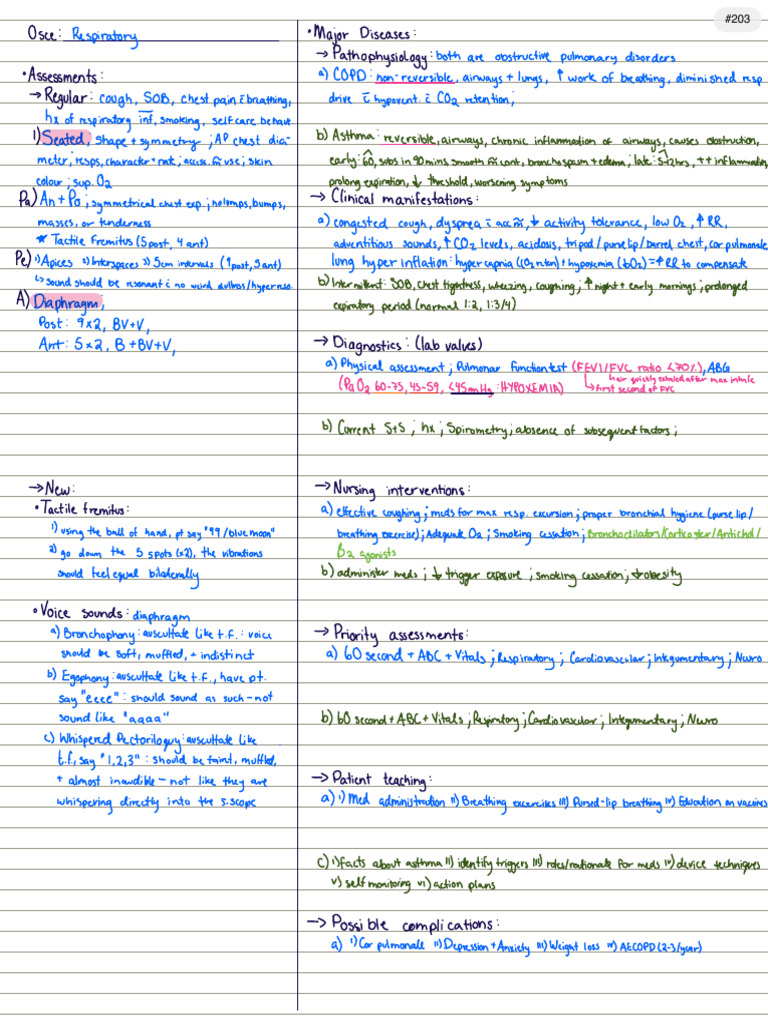 #203
Osce: Respiratory
• Assessments:
→ Regular: cough, SOB, chest pain c̄ breathing,
hx of respiratory inf, smoking, self care behav
1) Seated, shape + symmetry; AP chest dia-
meter; resps, character + rate; access. m use; skin
colour; sup. O2
Pa) An + Po; symmetrical chest exp.; no lumps, bumps,
masses, or tenderness
* Tactile Fremitus (5 post, 4 ant)
Pe) 1) Apices 2) Interspaces 3) 5cm intervals (9 post, 5 ant)
↳ sound should be resonant c̄ no weird dullness/hyperreso.
A) Diaphragm,
Post: 9x2, BV+V,
Ant: 5x2, B+BV+V,
→ New:
• Tactile fremitus:
1) using the ball of hand, pt say "99/blue moon"
2) go down the 5 spots (x2), the vibrations
should feel equal bilaterally
• Voice sounds: diaphragm
a) Bronchophony: auscultate like t.f.: voice
should be soft, muffled, + indistinct
b) Egophony: auscultate like t.f., have pt.
say "eeee": should sound as such - not
sound like "aaaa"
c) Whispered Pectoriloquy: auscultate like
t.f, say "1,2,3": should be faint, muffled,
+ almost inaudible - not like they are
whispering directly into the s.scope
• Major Diseases:
→ Pathophysiology: both are obstructive pulmonary disorders
a) COPD: non-reversible, airways + lungs, ↑ work of breathing, diminished resp
drive c̄ hypovent. c̄ CO2 retention;
b) Asthma: reversible, airways, chronic inflammation of airways, causes obstruction,
early: 60, subs in 90 mins, smooth m cont, bronchospasm + edema; late: 5-12hrs, ++ inflammation
prolong expiration, ↓ threshold, worsening symptoms
→ Clinical manifestations:
a) congested cough, dyspnea c̄ acc m, ↓ activity tolerance, low O2, ↑ RR,
adventitious sounds, ↑ CO2 levels, acidosis, tripod/purse lip/barrel chest, cor pulmonale
lung hyper inflation: hypercapnia (CO2 reten) + hypoxemia (↓O2) = ↑ RR to compensate
b) Intermittent: SOB, chest tightness, wheezing, coughing; ↑ night + early mornings; prolonged
expiratory period (normal 1:2, 1:3/4)
→ Diagnostics: (lab values)
a) Physical assessment; Pulmonar function test (FEV1/FVC ratio <70%), ABG
how quickly exhaled after max inhale
(PaO2 60-75, 45-59, <45mmHg: HYPOXEMIA) ↳ first second of FVC
b) Current S+S; hx; Spirometry; absence of subsequent factors;
→ Nursing interventions:
a) effective coughing; meds for max resp. excursion; proper bronchial hygiene (purse lip/
breathing exercise); Adequate O2; Smoking cessation; Bronchodilators/Corticoster/Antichol/
B2 agonists
b) administer meds; ↓ trigger exposure; smoking cessation; ↓ obesity
→ Priority assessments:
a) 60 second + ABC + Vitals; Respiratory; Cardiovascular; Integumentary; Neuro
b) 60 second + ABC + Vitals; Respiratory; Cardiovascular; Integumentary; Neuro
→ Patient teaching:
a) i) Med administration ii) Breathing excercises iii) Pursed-lip breathing iv) Education on vaccines
c) i) facts about asthma ii) identify triggers iii) roles/rationale for meds iv) device techniques
v) self monitoring vi) action plans
→ Possible complications:
a) i) Cor pulmonale ii) Depression + Anxiety iii) Weight loss iv) AECOPD (2-3/year)